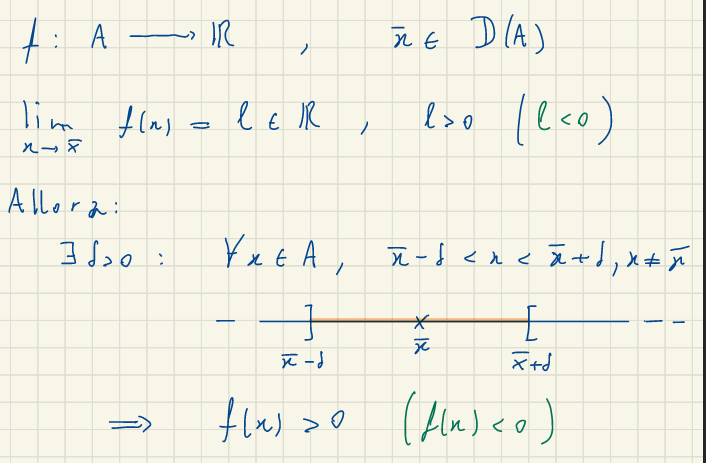 f : A ⟶ ℝ , x̄ ∈ D(A)
lim f(x) = l ∈ ℝ , l>0 (l<0)
x→x̄
Allora:
∃ δ>0 : ∀ x ∈ A , x̄-δ < x < x̄+δ, x≠x̄
] x [
x̄-δ x̄ x̄+δ
⟹ f(x) > 0 (f(x) < 0)